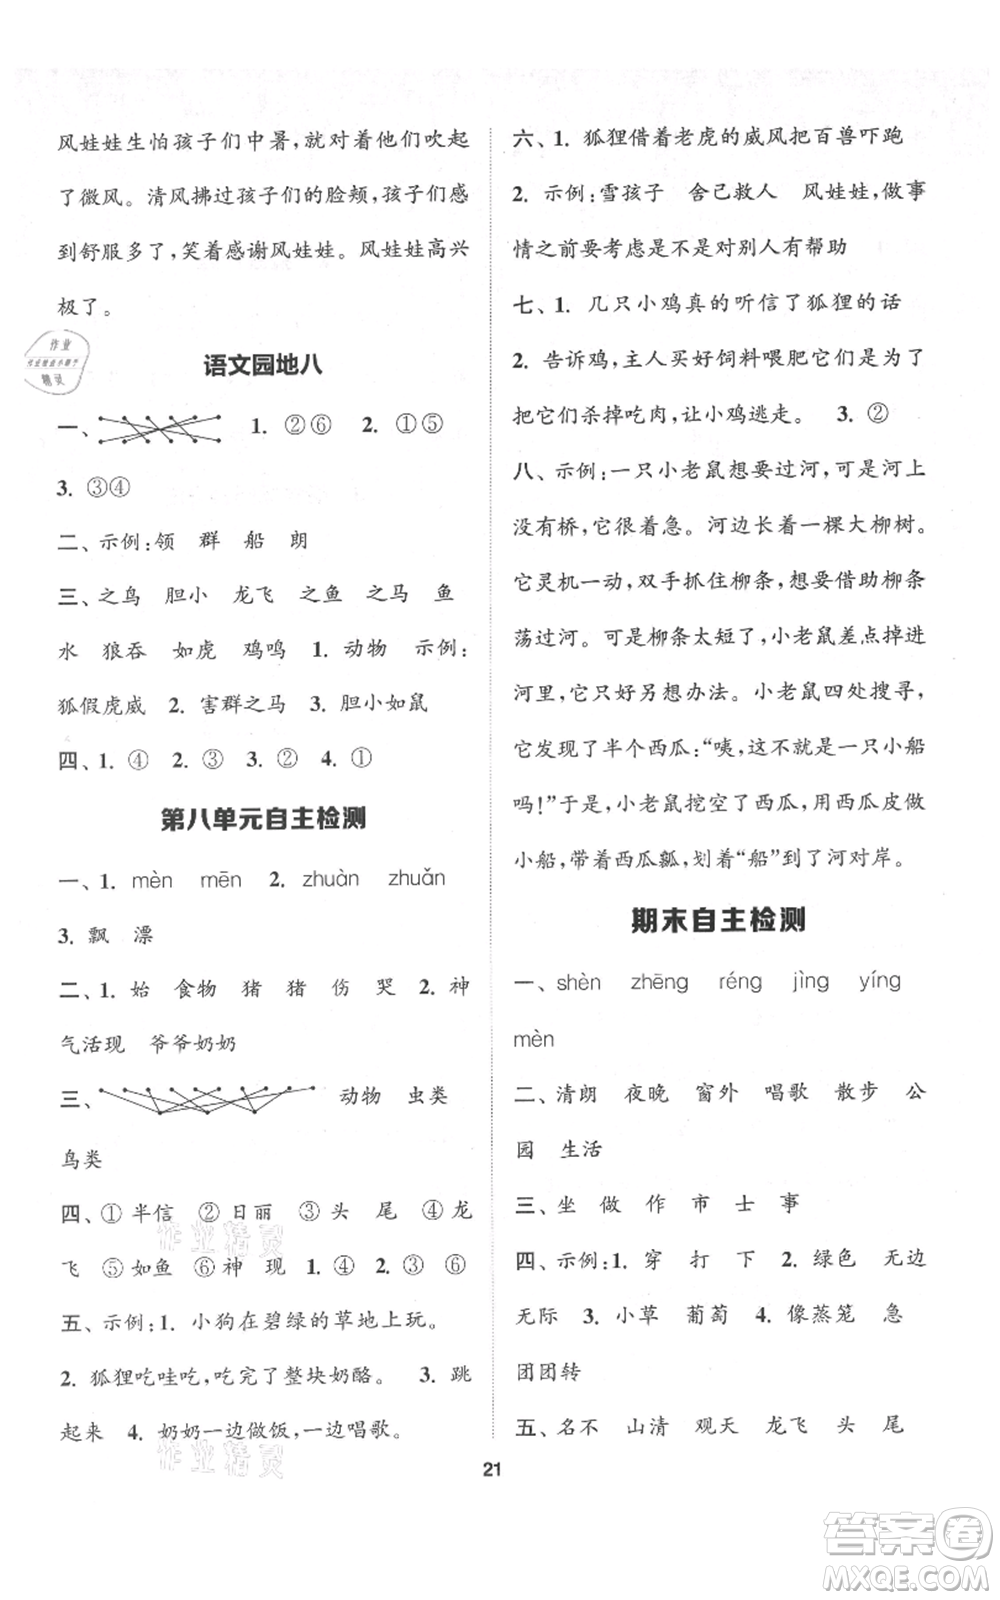 风娃娃生怕孩子们中暑,就对着他们吹起
了微风。清风拂过孩子们的脸颊,孩子们感
到舒服多了,笑着感谢风娃娃。风娃娃高兴
极了。
作业
精灵
语文园地八
一、 1. ②⑥ 2. ①⑤
3. ③④
二、示例:领 群 船 朗
三、之鸟 胆小 龙飞 之鱼 之马 鱼
水 狼吞 如虎 鸡鸣 1. 动物 示例:
狐假虎威 2. 害群之马 3. 胆小如鼠
四、1. ④ 2. ③ 3. ② 4. ①
第八单元自主检测
一、1. mèn mēn 2. zhuàn zhuǎn
3. 飘 漂
二、1. 始 食物 猪 猪 伤 哭 2. 神
气活现 爷爷奶奶
三、 动物 虫类
鸟类
四、① 半信 ② 日丽 ③ 头 尾 ④ 龙
飞 ⑤ 如鱼 ⑥ 神 现 1. ④ 2. ③ ⑥
五、示例:1. 小狗在碧绿的草地上玩。
2. 狐狸吃哇吃,吃完了整块奶酪。 3. 跳
起来 4. 奶奶一边做饭,一边唱歌。
作业精灵
作业精灵
六、1. 狐狸借着老虎的威风把百兽吓跑
2. 示例:雪孩子 舍己救人 风娃娃,做事
情之前要考虑是不是对别人有帮助
七、1. 几只小鸡真的听信了狐狸的话
2. 告诉鸡,主人买好饲料喂肥了当然要
把它们杀掉吃肉,让小鸡逃走。 3. ②
八、示例:一只小老鼠想要过河,可是河上
没有桥,它很着急。河边长着一棵大柳树。
它灵机一动,双手抓住柳条,想要借助柳条
荡过河。可是柳条太短了,小老鼠差点掉进
河里,它只好另想办法。小老鼠四处搜寻,
它发现了半个西瓜:“咦,这不就是一只小船
吗!”于是,小老鼠挖空了西瓜,用西瓜皮做
小船,带着西瓜瓤,划着“船”到了河对岸。
期末自主检测
一、shèn zhēng réng jìng yíng
mèn
二、清朗 夜晚 窗外 唱歌 散步 公
园 生活
三、坐 做 作 市 士 事
四、示例:1. 穿 打 下 2. 绿色 无边
无际 3. 小草 葡萄 4. 像蒸笼 急
团团转
五、名不 山清 观天 龙飞 头 尾
21
答案圈
MXQE.COM